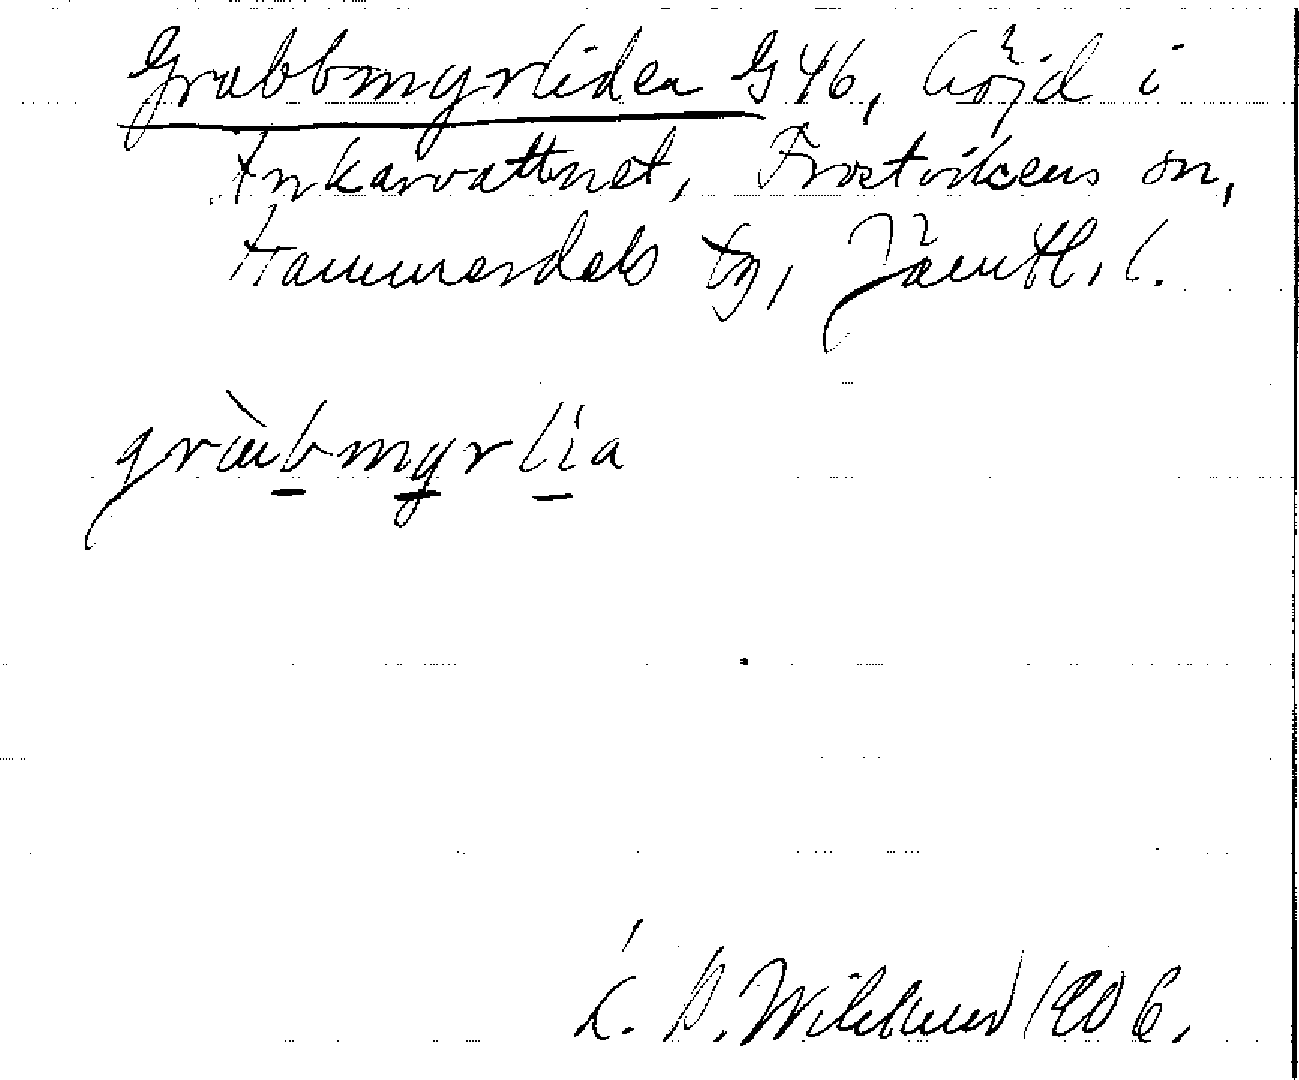 Grabbmyrliden G46, höjd i
Ankarvattnet, Frostvikens sn,
Hammerdals tg, Jämtl. l.
gràbmyrlia
K. B. Wiklund 1906.